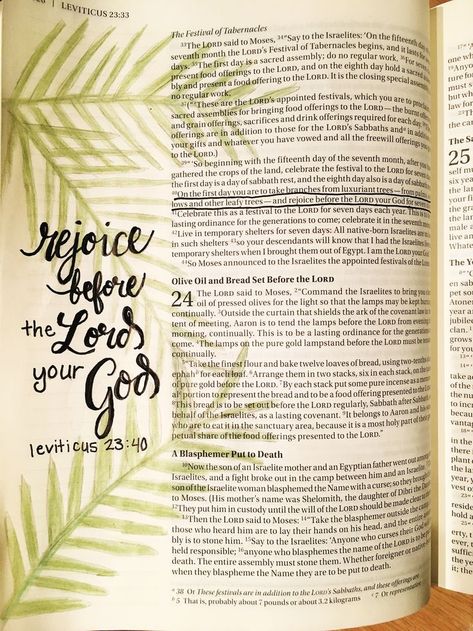 LEVITICUS 23:33
The Festival of Tabernacles
33The LORD said to Moses, 34"Say to the Israelites: 'On the fifteenth day of
seventh month the LORD's Festival of Tabernacles begins, and it lasts for
days. 35The first day is a sacred assembly; do no regular work. 36For seven
present food offerings to the LORD, and on the eighth day hold a sacred
bly and present a food offering to the LORD. It is the closing special
no regular work.
37("'These are the LORD's appointed festivals, which you are to proclaim
sacred assemblies for bringing food offerings to the LORD—the burnt
and grain offerings, sacrifices and drink offerings required for each day. 38These
offerings are in addition to those for the LORD's Sabbaths and a in addition
your gifts and whatever you have vowed and all the freewill offerings you
to the LORD.)
39"'So beginning with the fifteenth day of the seventh month, after you
gathered the crops of the land, celebrate the festival to the LORD for seven
the first day is a day of sabbath rest, and the eighth day also is a day of sabbath
40On the first day you are to take branches from luxuriant trees—from palms
lows and other leafy trees—and rejoice before the LORD your God for seven
41Celebrate this as a festival to the LORD for seven days each year. This is
lasting ordinance for the generations to come; celebrate it in the seventh
42Live in temporary shelters for seven days: All native-born Israelites are
in such shelters 43so your descendants will know that I had the Israelites
temporary shelters when I brought them out of Egypt. I am the LORD your
44So Moses announced to the Israelites the appointed festivals of the LORD
Olive Oil and Bread Set Before the LORD
24 The LORD said to Moses, 2"Command the Israelites to bring you
oil of pressed olives for the light so that the lamps may be kept
continually. 3Outside the curtain that shields the ark of the covenant law
tent of meeting, Aaron is to tend the lamps before the LORD from evening
morning, continually. This is to be a lasting ordinance for the generations
come. 4The lamps on the pure gold lampstand before the LORD must be
continually.
5"Take the finest flour and bake twelve loaves of bread, using two-tenths
ephah b for each loaf. 6Arrange them in two stacks, six in each stack, on the
of pure gold before the LORD. 7By each stack put some pure incense as a
al portion to represent the bread and to be a food offering presented to the LORD.
8This bread is to be set out before the LORD regularly, Sabbath after Sabbath,
behalf of the Israelites, as a lasting covenant. 9It belongs to Aaron and his
who are to eat it in the sanctuary area, because it is a most holy part of their
petual share of the food offerings presented to the LORD."
A Blasphemer Put to Death
10Now the son of an Israelite mother and an Egyptian father went out among
Israelites, and a fight broke out in the camp between him and an Israelite.
son of the Israelite woman blasphemed the Name with a curse; so they brought
to Moses. (His mother's name was Shelomith, the daughter of Dibri the
12They put him in custody until the will of the LORD should be made clear to
13Then the LORD said to Moses: 14"Take the blasphemer outside the camp.
those who heard him are to lay their hands on his head, and the entire
bly is to stone him. 15Say to the Israelites: 'Anyone who curses their God will
held responsible; 16anyone who blasphemes the name of the LORD is to be
death. The entire assembly must stone them. Whether foreigner or native-born,
when they blaspheme the Name they are to be put to death.
a 38 Or These festivals are in addition to the LORD's Sabbaths, and these offerings are
b 5 That is, probably about 7 pounds or about 3.2 kilograms c 7 Or representative
rejoice
before
the Lord
your
God
leviticus 23:40
25